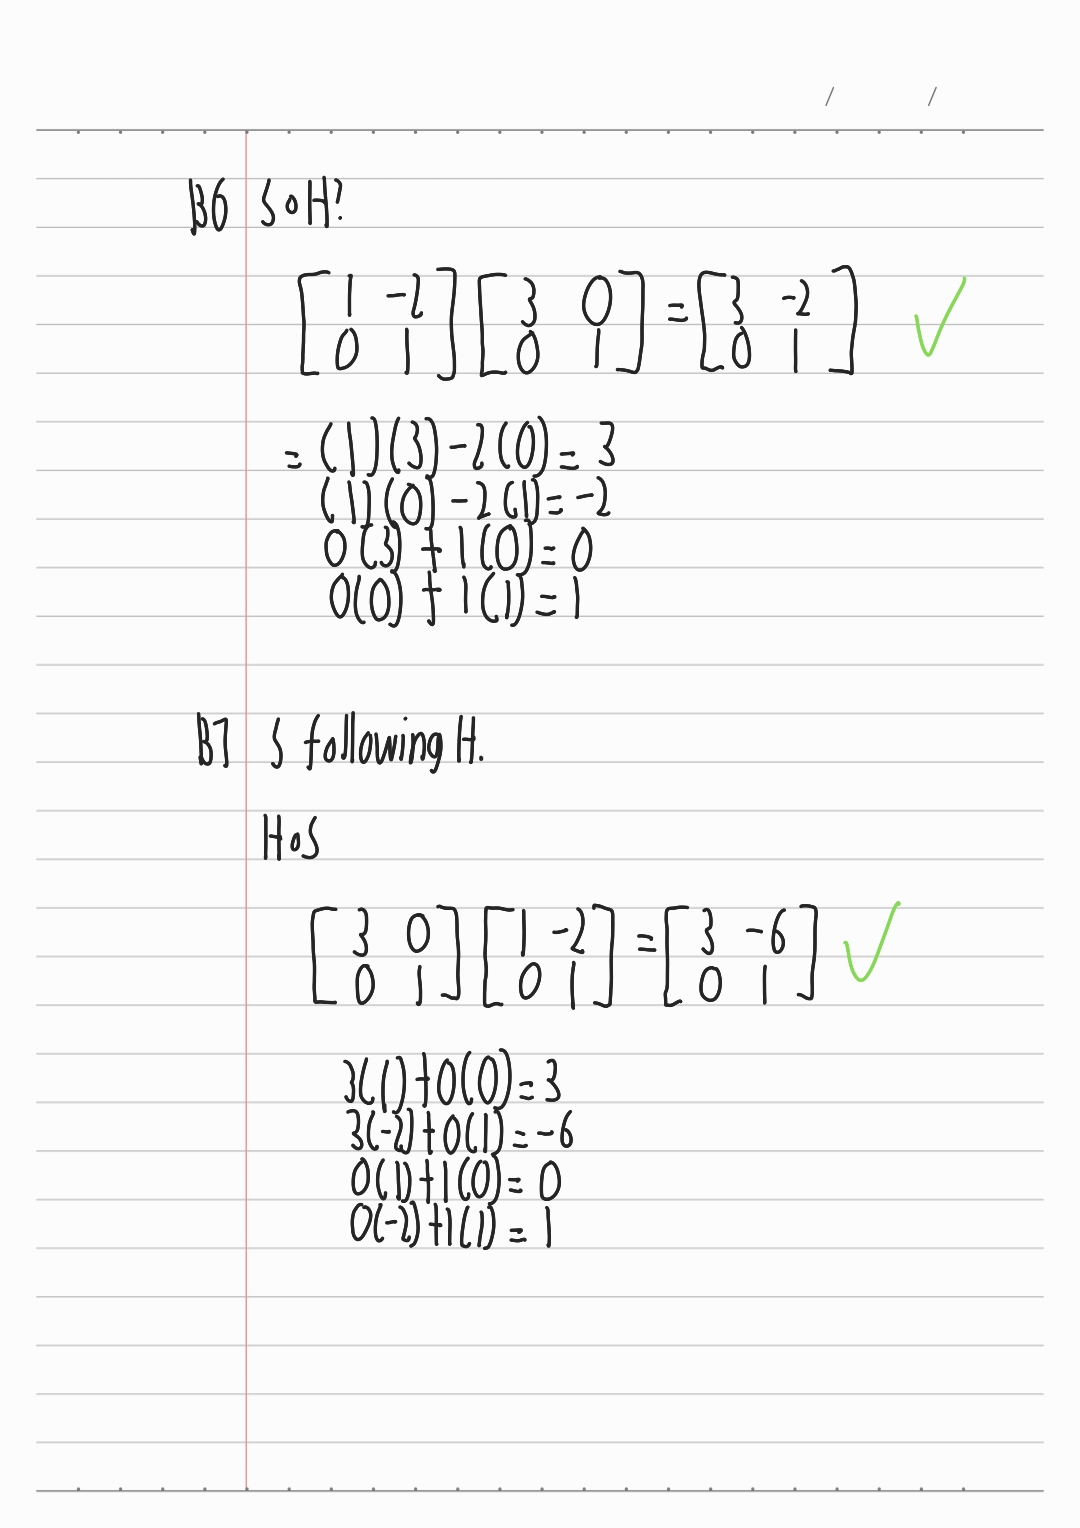 B6 SoH?
[1 -2] [3 0] = [3 -2]
[0 1] [0 1] [0 1]
= (1)(3) - 2(0) = 3
(1)(0) - 2(1) = -2
0(3) + 1(0) = 0
0(0) + 1(1) = 1
B7 S following H.
HoS
[3 0] [1 -2] = [3 -6]
[0 1] [0 1] [0 1]
3(1) + 0(0) = 3
3(-2) + 0(1) = -6
0(1) + 1(0) = 0
0(-2) + 1(1) = 1